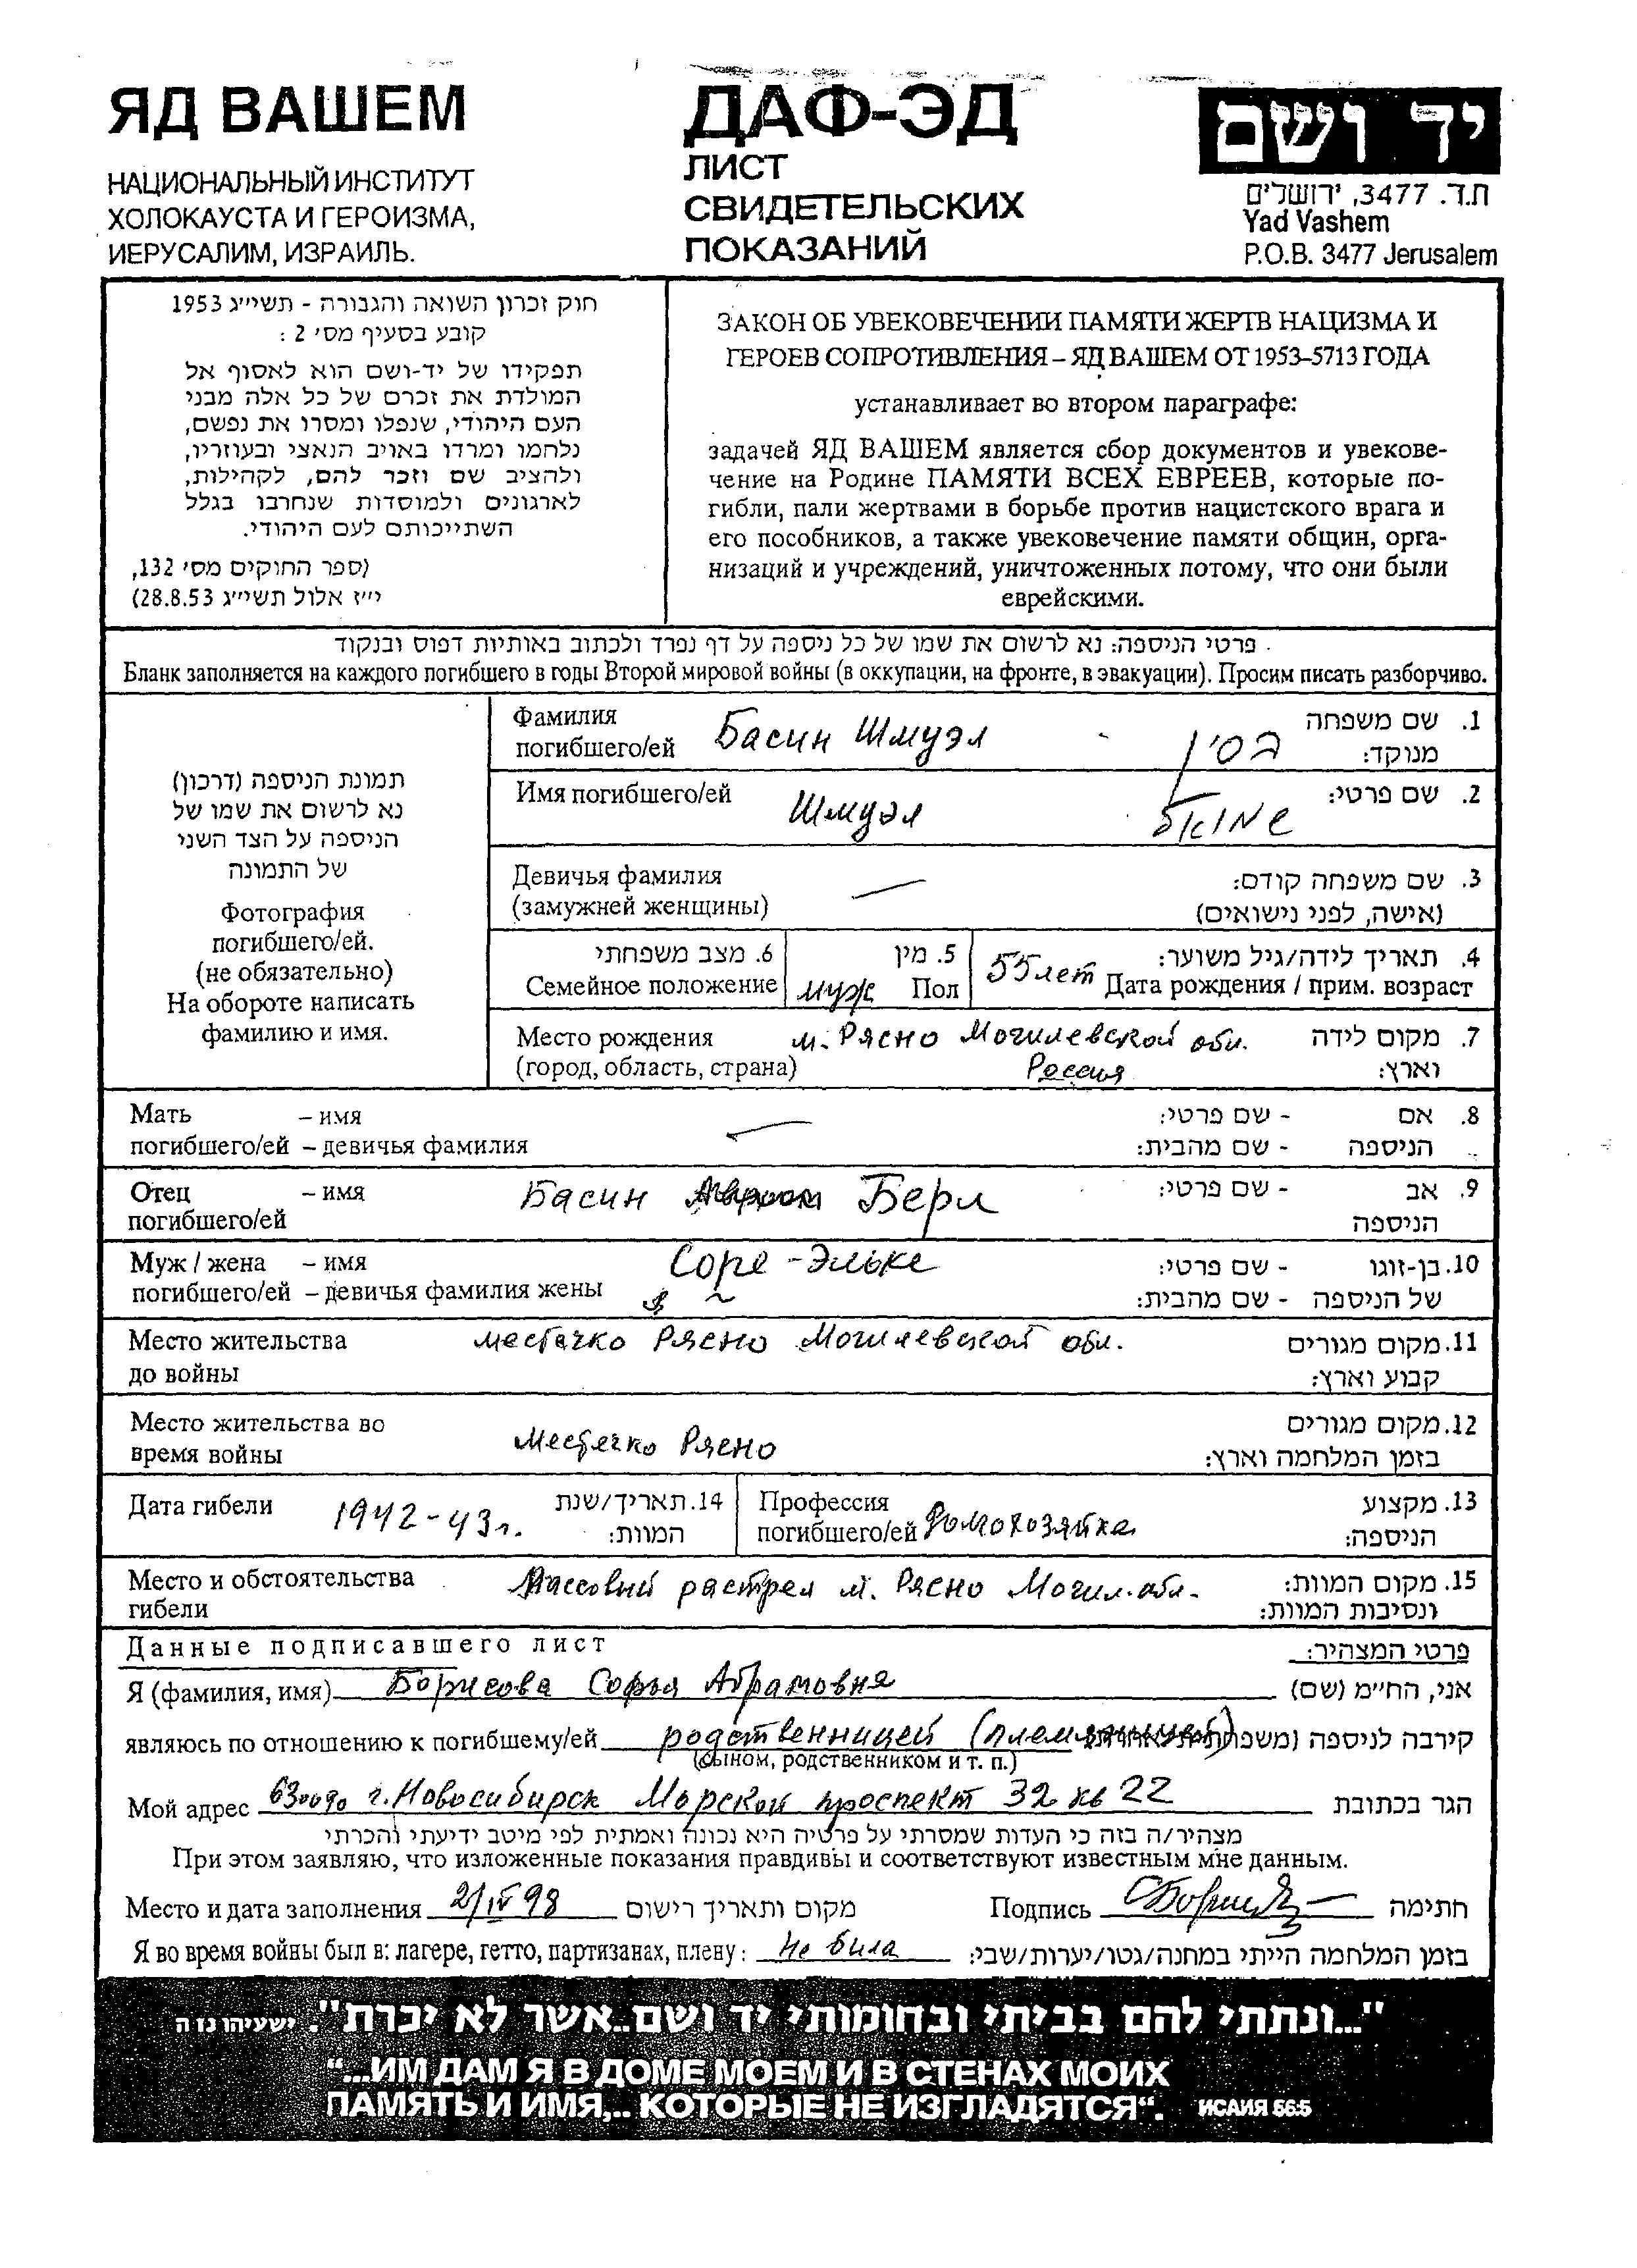 ЯД ВАШЕМ
НАЦИОНАЛЬНЫЙ ИНСТИТУТ
ХОЛОКАУСТА И ГЕРОИЗМА,
ИЕРУСАЛИМ, ИЗРАИЛЬ.
ДАФ-ЭД
ЛИСТ
СВИДЕТЕЛЬСКИХ
ПОКАЗАНИЙ
יד ושם
ת.ד. 3477, ירושלים
Yad Vashem
P.O.B. 3477 Jerusalem
חוק זכרון השואה והגבורה - תשי״ג 1953
קובע בסעיף מס׳ 2 :
תפקידו של יד-ושם הוא לאסוף אל
המולדת את זכרם של כל אלה מבני
העם היהודי, שנפלו ומסרו את נפשם,
נלחמו ומרדו באויב הנאצי ובעוזריו,
ולהציב שם וזכר להם, לקהילות,
לארגונים ולמוסדות שנחרבו בגלל
השתייכותם לעם היהודי.
(ספר החוקים מס׳ 132,
י״ז אלול תשי״ג 28.8.53)
ЗАКОН ОБ УВЕКОВЕЧЕНИИ ПАМЯТИ ЖЕРТВ НАЦИЗМА И
ГЕРОЕВ СОПРОТИВЛЕНИЯ – ЯД ВАШЕМ ОТ 1953–5713 ГОДА
устанавливает во втором параграфе:
задачей ЯД ВАШЕМ является сбор документов и увекове-
чение на Родине ПАМЯТИ ВСЕХ ЕВРЕЕВ, которые по-
гибли, пали жертвами в борьбе против нацистского врага и
его пособников, а также увековечение памяти общин, орга-
низаций и учреждений, уничтоженных потому, что они были
еврейскими.
פרטי הניספה: נא לרשום את שמו של כל ניספה על דף נפרד ולכתוב באותיות דפוס ובנקוד
Бланк заполняется на каждого погибшего в годы Второй мировой войны (в оккупации, на фронте, в эвакуации). Просим писать разборчиво.
תמונת הניספה (דרכון)
נא לרשום את שמו של
הניספה על הצד השני
של התמונה
Фотография
погибшего/ей.
(не обязательно)
На обороте написать
фамилию и имя.
Фамилия
погибшего/ей Басин Шмуэл בסין
1. שם משפחה
מנוקד:
Имя погибшего/ей Шмуэл שמואל 2. שם פרטי:
Девичья фамилия
(замужней женщины)
3. שם משפחה קודם:
(אישה, לפני נישואים)
6. מצב משפחתי
Семейное положение
5. מין
муж Пол
4. תאריך לידה/גיל משוער:
55 лет Дата рождения / прим. возраст
Место рождения м. Рясно Могилевской обл. 7. מקום לידה
(город, область, страна) Россия וארץ:
Мать – имя 8. אם - שם פרטי:
погибшего/ей – девичья фамилия הניספה - שם מהבית:
Отец – имя Басин Берл 9. אב - שם פרטי:
погибшего/ей הניספה
Муж / жена – имя Соре-Эльке 10. בן-זוגו - שם פרטי:
погибшего/ей – девичья фамилия жены של הניספה - שם מהבית:
Место жительства местечко Рясно Могилевской обл. 11. מקום מגורים
до войны קבוע וארץ:
Место жительства во 12. מקום מגורים
время войны Местечко Рясно בזמן המלחמה וארץ:
Дата гибели 1942-43г. 14. תאריך/שנת
המוות:
Профессия 13. מקצוע
погибшего/ей домохозяйка הניספה:
Место и обстоятельства Массовый растрел м. Рясно Могил. обл. 15. מקום המוות:
гибели ונסיבות המוות:
Данные подписавшего лист פרטי המצהיר:
Я (фамилия, имя) Борисова Софья Абрамовна אני, הח״מ (שם)
являюсь по отношению к погибшему/ей родственницей (племянницей) קירבה לניספה
(сыном, родственником и т. п.)
Мой адрес 630090 г. Новосибирск Морской проспект 32 кв 22 הגר בכתובת
מצהיר/ה בזה כי העדות שמסרתי על פרטיה היא נכונה ואמתית לפי מיטב ידיעתי והכרתי
При этом заявляю, что изложенные показания правдивы и соответствуют известным мне данным.
Место и дата заполнения 2/IV 98 מקום ותאריך רישום Подпись חתימה
Я во время войны был в: лагере, гетто, партизанах, плену: не была בזמן המלחמה הייתי במחנה/גטו/יערות/שבי:
"...ונתתי להם בביתי ובחומותי יד ושם..אשר לא יכרת". ישעיהו נז ה
“...ИМ ДАМ Я В ДОМЕ МОЕМ И В СТЕНАХ МОИХ
ПАМЯТЬ И ИМЯ,.. КОТОРЫЕ НЕ ИЗГЛАДЯТСЯ“. ИСАИЯ 56:5